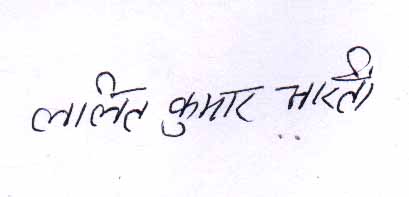 ललित कुमार भारती